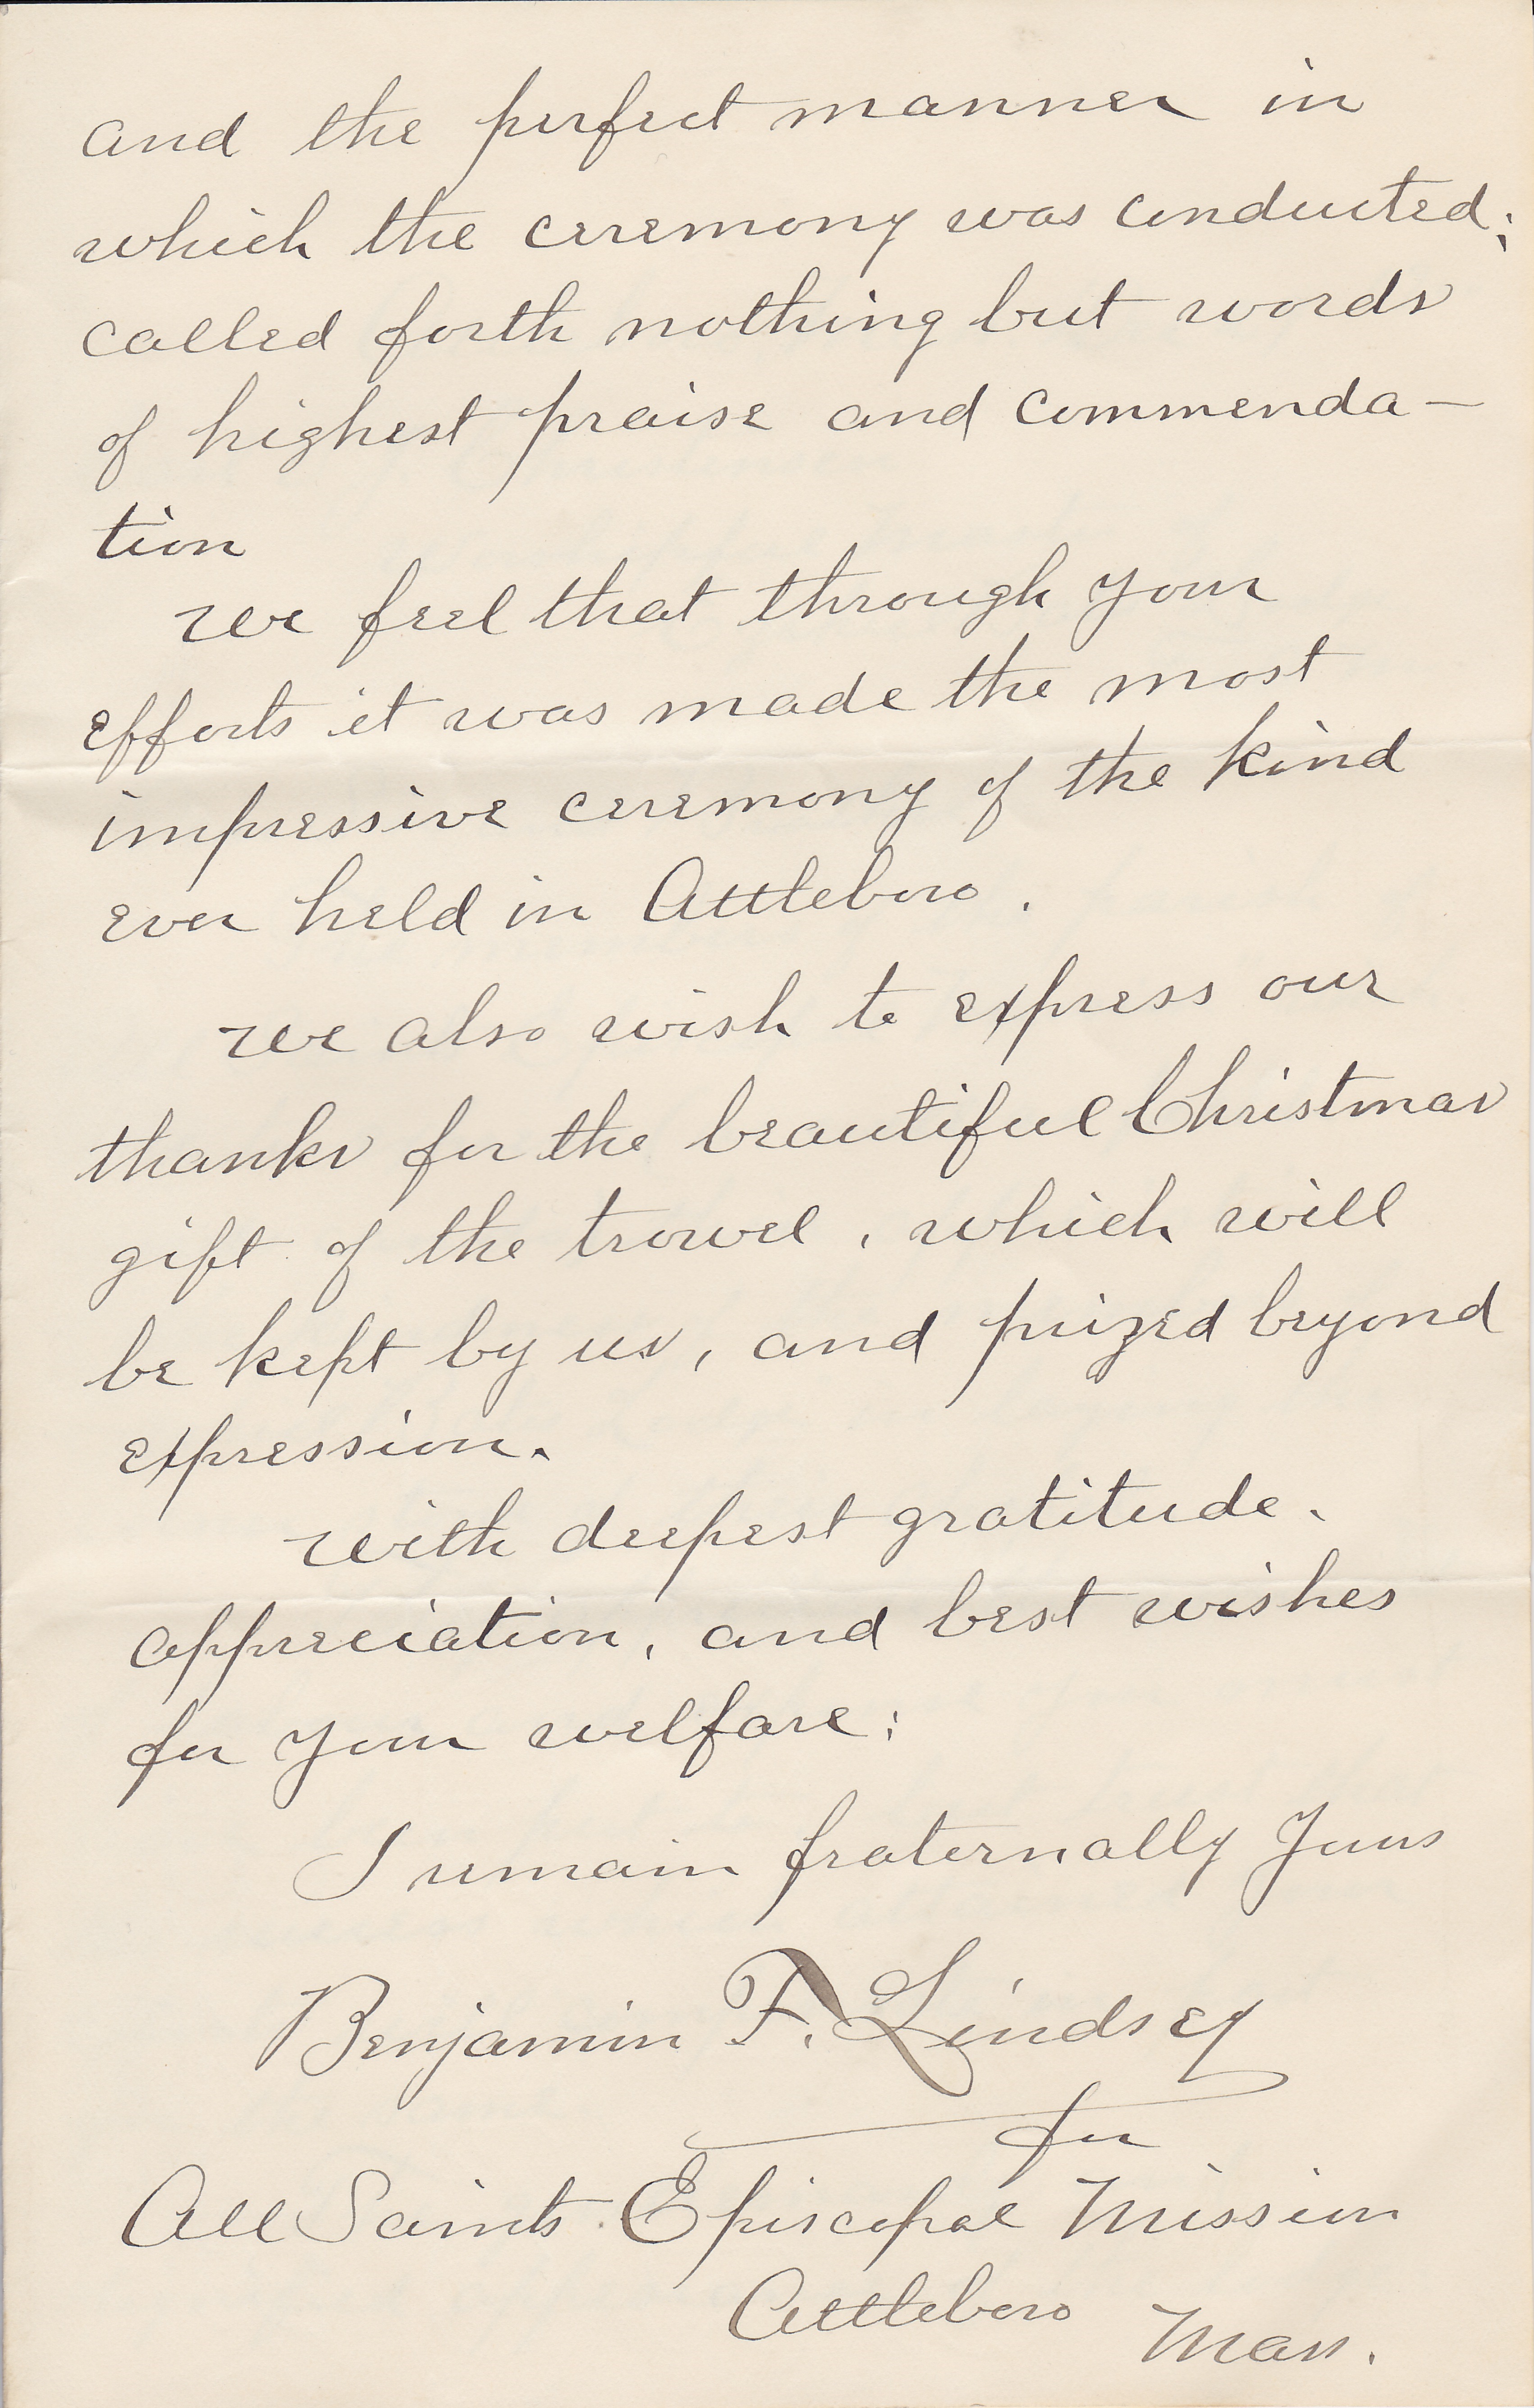 and the perfect manner in
which the ceremony was conducted;
called forth nothing but words
of highest praise and commenda-
tion
We feel that through your
efforts it was made the most
impressive ceremony of the kind
ever held in Attleboro.
We also wish to express our
thanks for the beautiful Christmas
gift of the trowel, which will
be kept by us, and prized beyond
expression.
With deepest gratitude,
appreciation, and best wishes
for your welfare;
I remain fraternally Yours
Benjamin F. Lindsey
for
All Saints Episcopal Mission
Attleboro Mass.